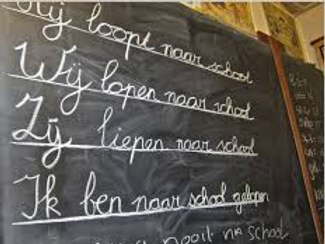 Hij loopt naar school
Wij lopen naar school
Zij liepen naar school
Ik ben naar school gelopen
nooit na school